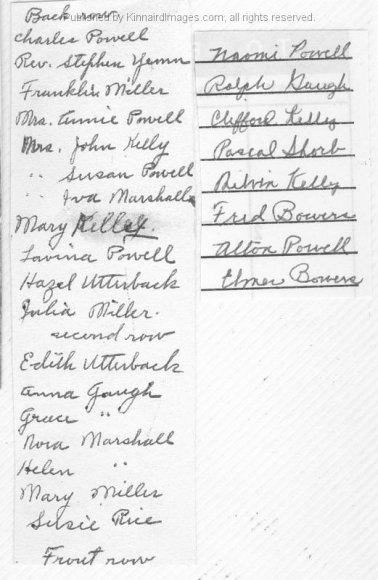 Published by KinnairdImages.com, all rights reserved.
Back row
Charles Powell
Rev. Stephen Yemm
Franklin Miller
Mrs. Annie Powell
Mrs. John Kelly
" Susan Powell
" Iva Marshall
Mary Kelley.
Lavina Powell
Hazel Utterback
Julia Miller.
second row
Edith Utterback
Anna Gough
Grace "
Nora Marshall
Helen "
Mary Miller
Susie Rice
Front row
Naomi Powell
Ralph Gough
Clifford Kelly
Pascal Shorb
Melvin Kelly
Fred Bowers
Alton Powell
Elmer Bowers